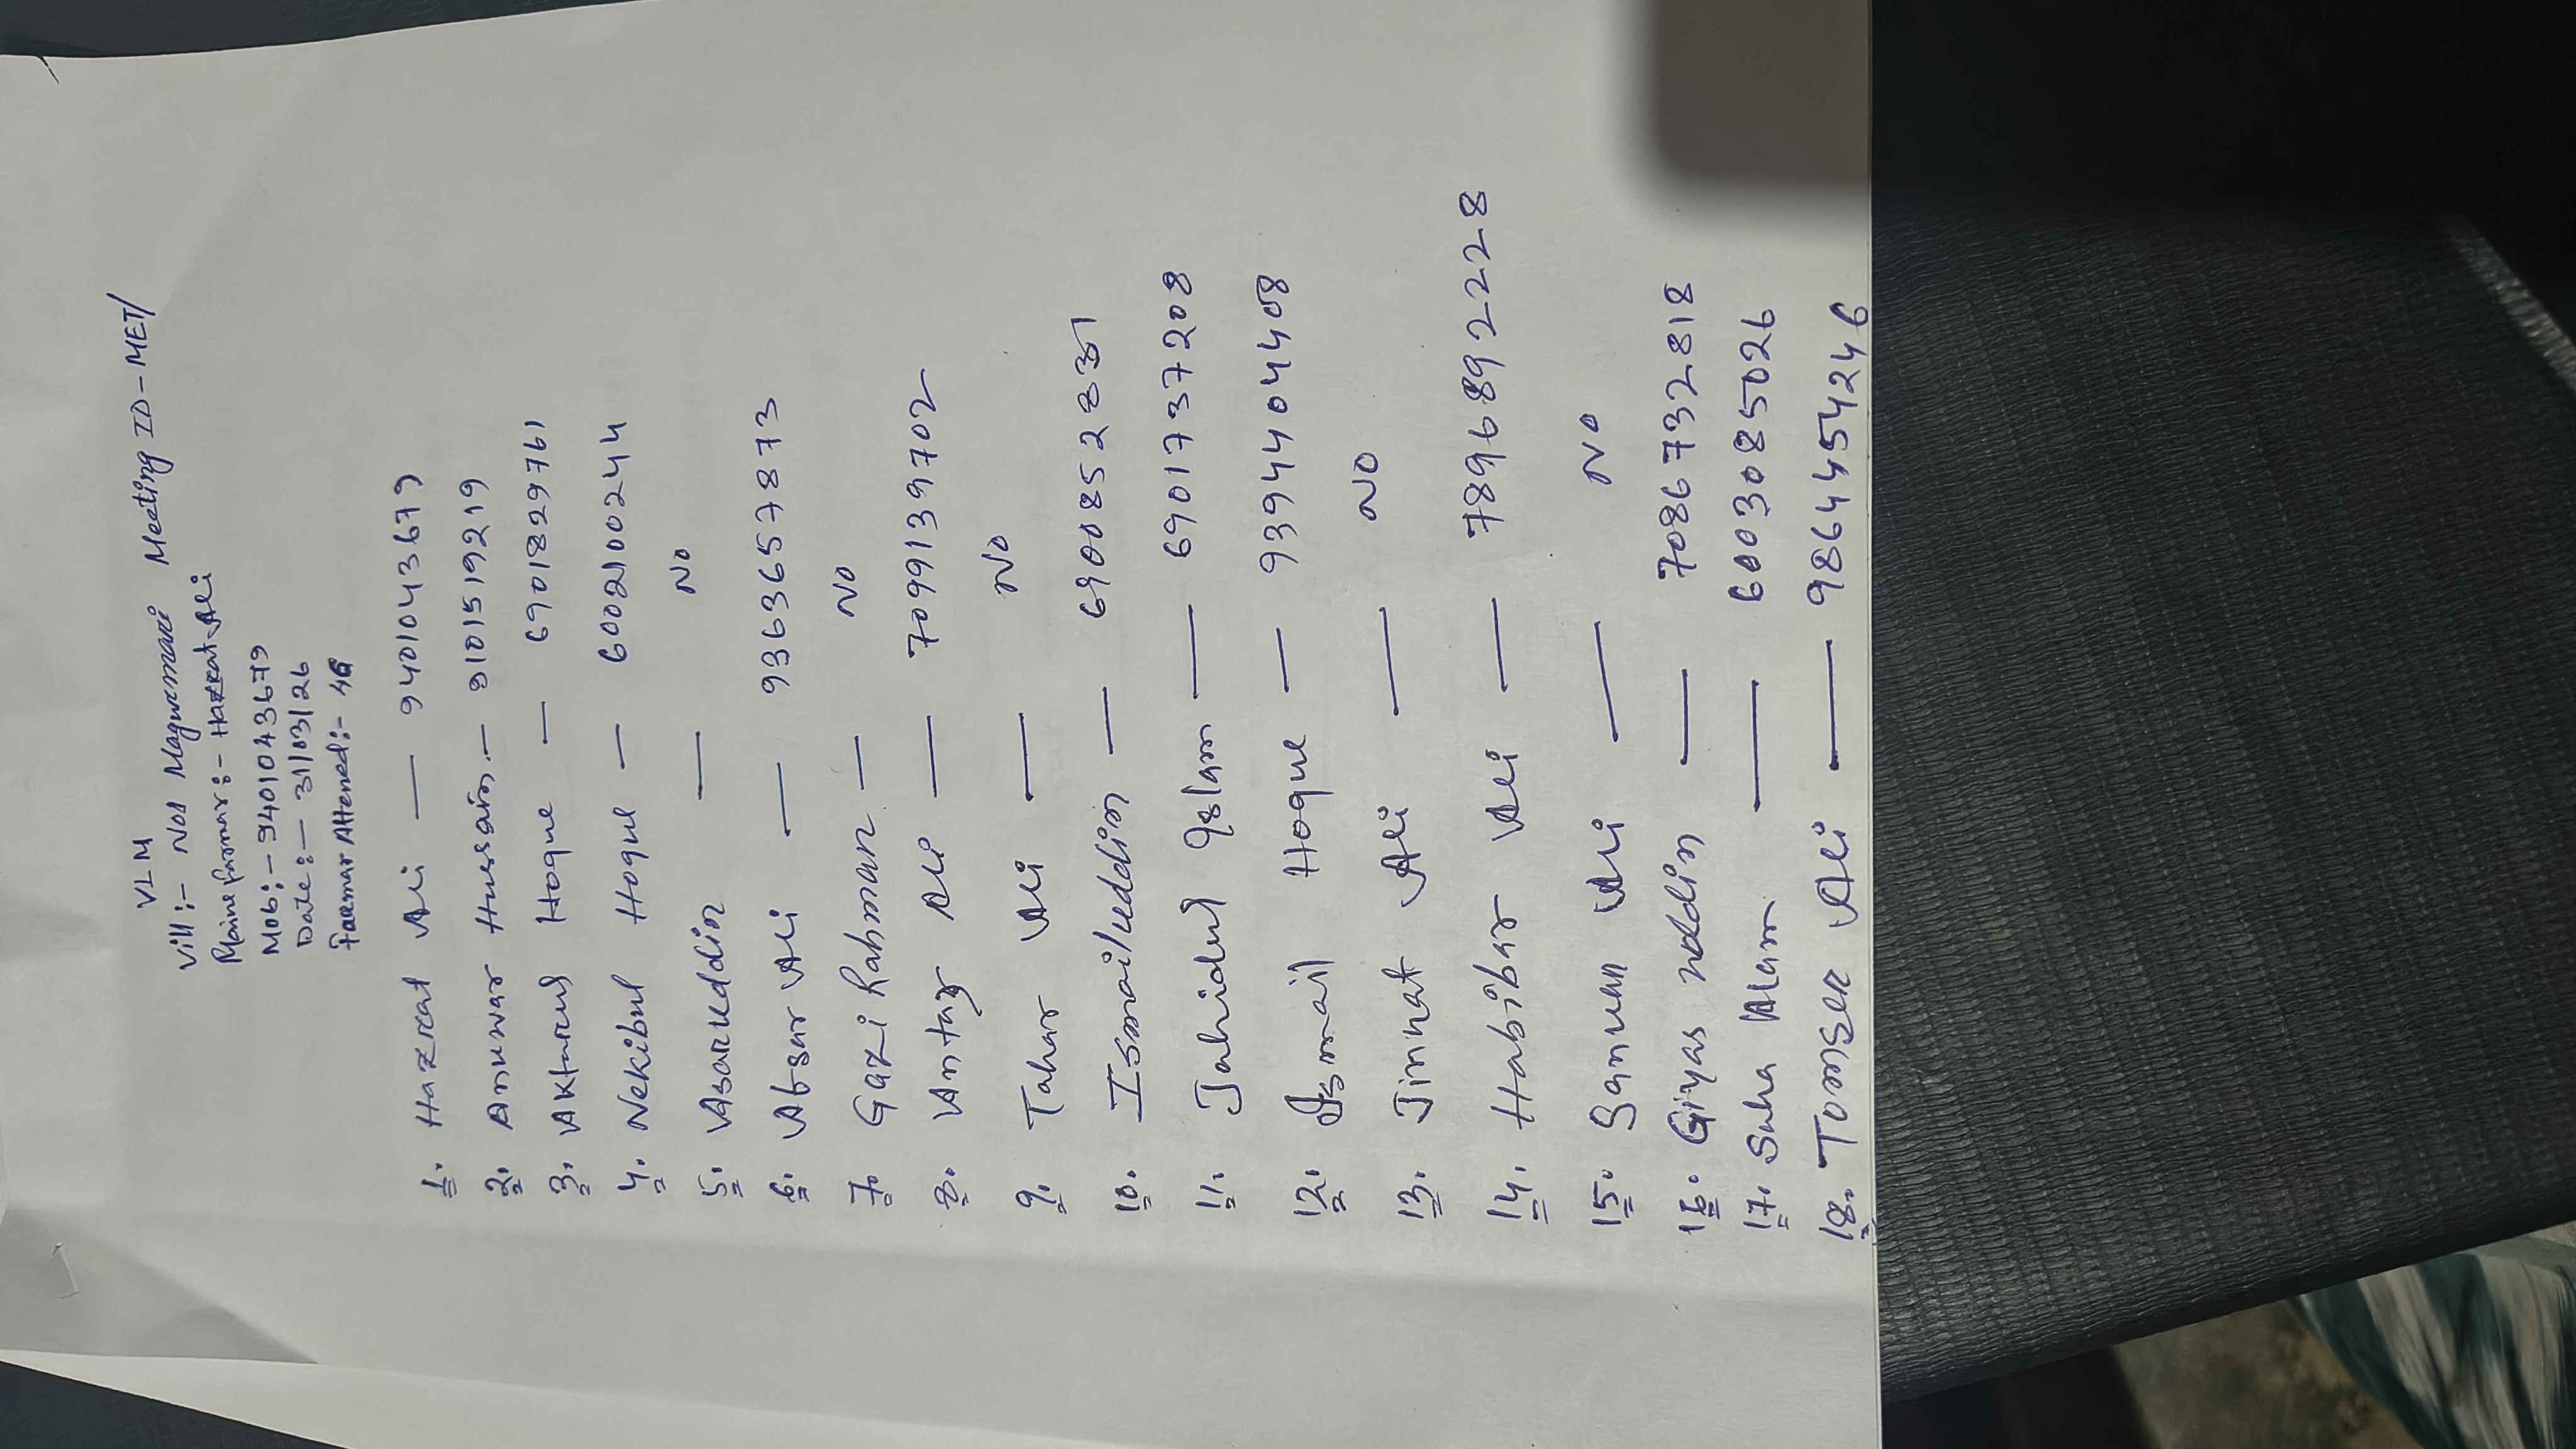 VLM
Vill :- No1 Magurmari Meeting ID-MET/
Maine farmar :- Hazrat Ali
Mob :- 9401043679
Date :- 31/03/26
Farmar Attened :- 46
1. Hazrat Ali — 9401043679
2. Anuwar Hussain — 9101519219
3. Aktarul Hoque — 6901829761
4. Nekibul Hoque — 6002100244
5. Asaruddin — No
6. Absar Ali — 9363657887 3
7. Gazi Rahman — No
8. Antaz Ali — 7099139702
9. Tahar Ali — No
10. Ismailuddin — 690085283
11. Jahidul Islam — 6901737208
12. Ismail Hoque — 9394404408
13. Jinnat Ali — No
14. Habibar Ali — 7896892228
15. Sanuar Ali — No
16. Giyas uddin — 7086732818
17. Suha Alam — 6003085026
18. Tomser Ali — 9864454246